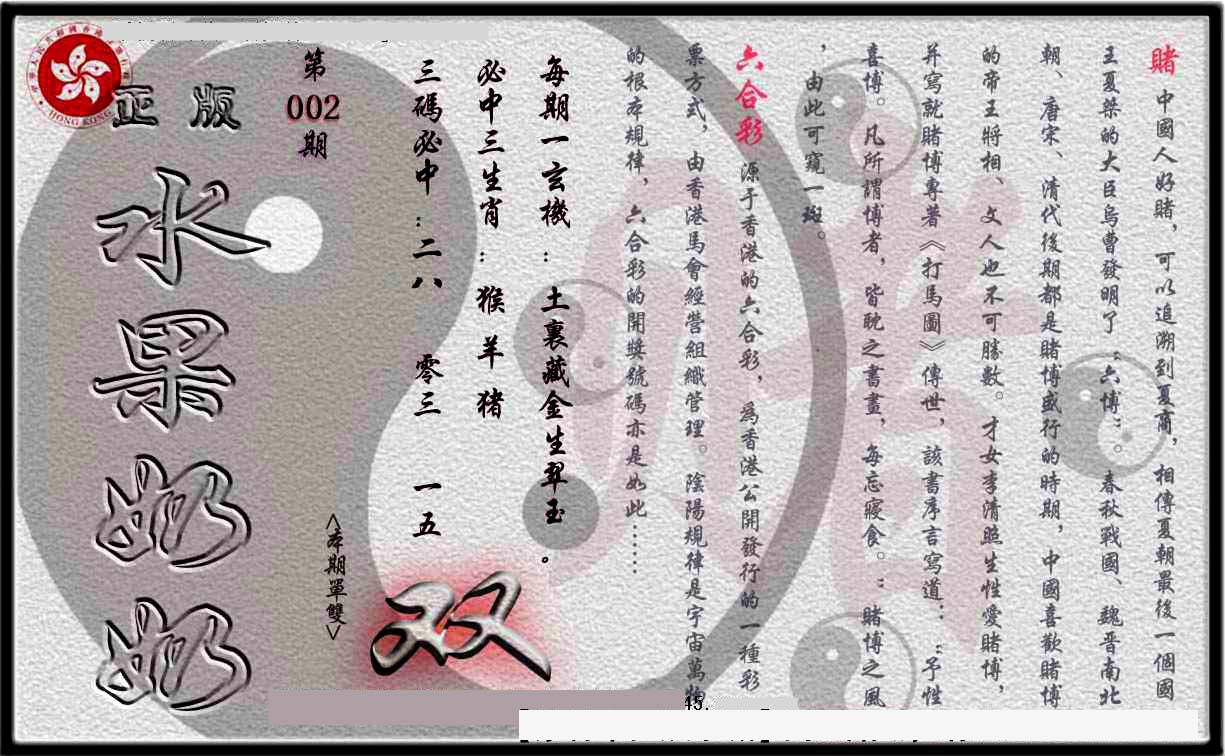 賭 中國人好賭，可以追溯到夏商，相傳夏朝最後一個國
王夏桀的大臣烏曹發明了“六博”。春秋戰國、魏晋南北
朝、唐宋、清代後期都是賭博盛行的時期，中國喜歡賭博
的帝王將相、文人也不可勝數。才女李清照生性愛賭博，
并寫就賭博專著《打馬圖》傳世，該書序言寫道：“予性
喜博。凡所謂博者，皆耽之書晝，每忘寢食。”賭博之風
，由此可窺一斑。
六合彩 源于香港的六合彩，爲香港公開發行的一種彩
票方式，由香港馬會經營組織管理。陰陽規律是宇宙萬物
的根本規律，六合彩的開獎號碼亦是如此……
每期一玄機：土裏藏金生翠玉。
必中三生肖：猴羊猪
三碼必中：二八 零三 一五
双
<本期單雙>
第002期
正版
水果奶奶
HONG KONG
45.